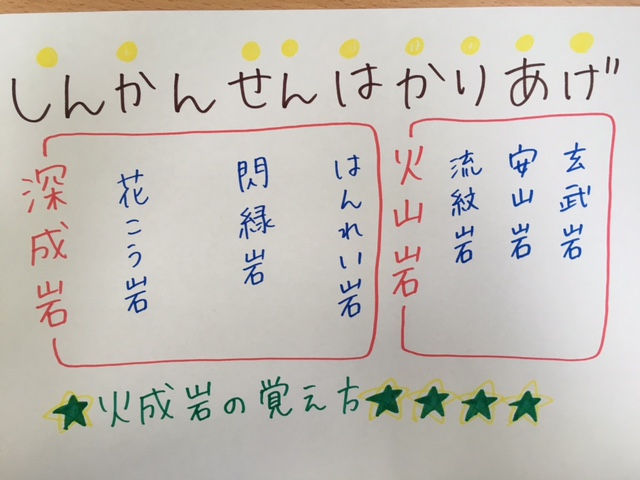 しんかんせんはかりあげ
深成岩
花こう岩
閃緑岩
はんれい岩
火山岩
流紋岩
安山岩
玄武岩
火成岩の覚え方